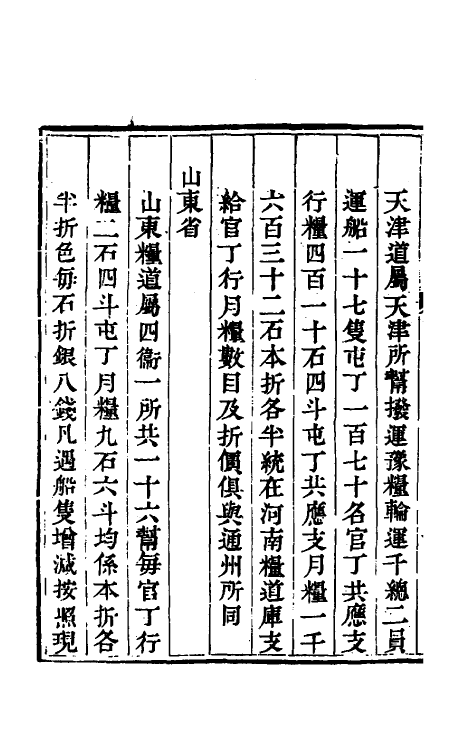 天津道屬天津所幫撥運豫糧輪運千總二員
運船一十七隻屯丁一百七十名官丁共應支
行糧四百一十石四斗屯丁共應支月糧一千
六百三十二石本折各半統在河南糧道庫支
給官丁行月糧數目及折價俱與通州所同
山東省
山東糧道屬四衞一所共一十六幫每官丁行
糧二石四斗屯丁月糧九石六斗均係本折各
半折色每石折銀八錢凡遇船隻增減按照現